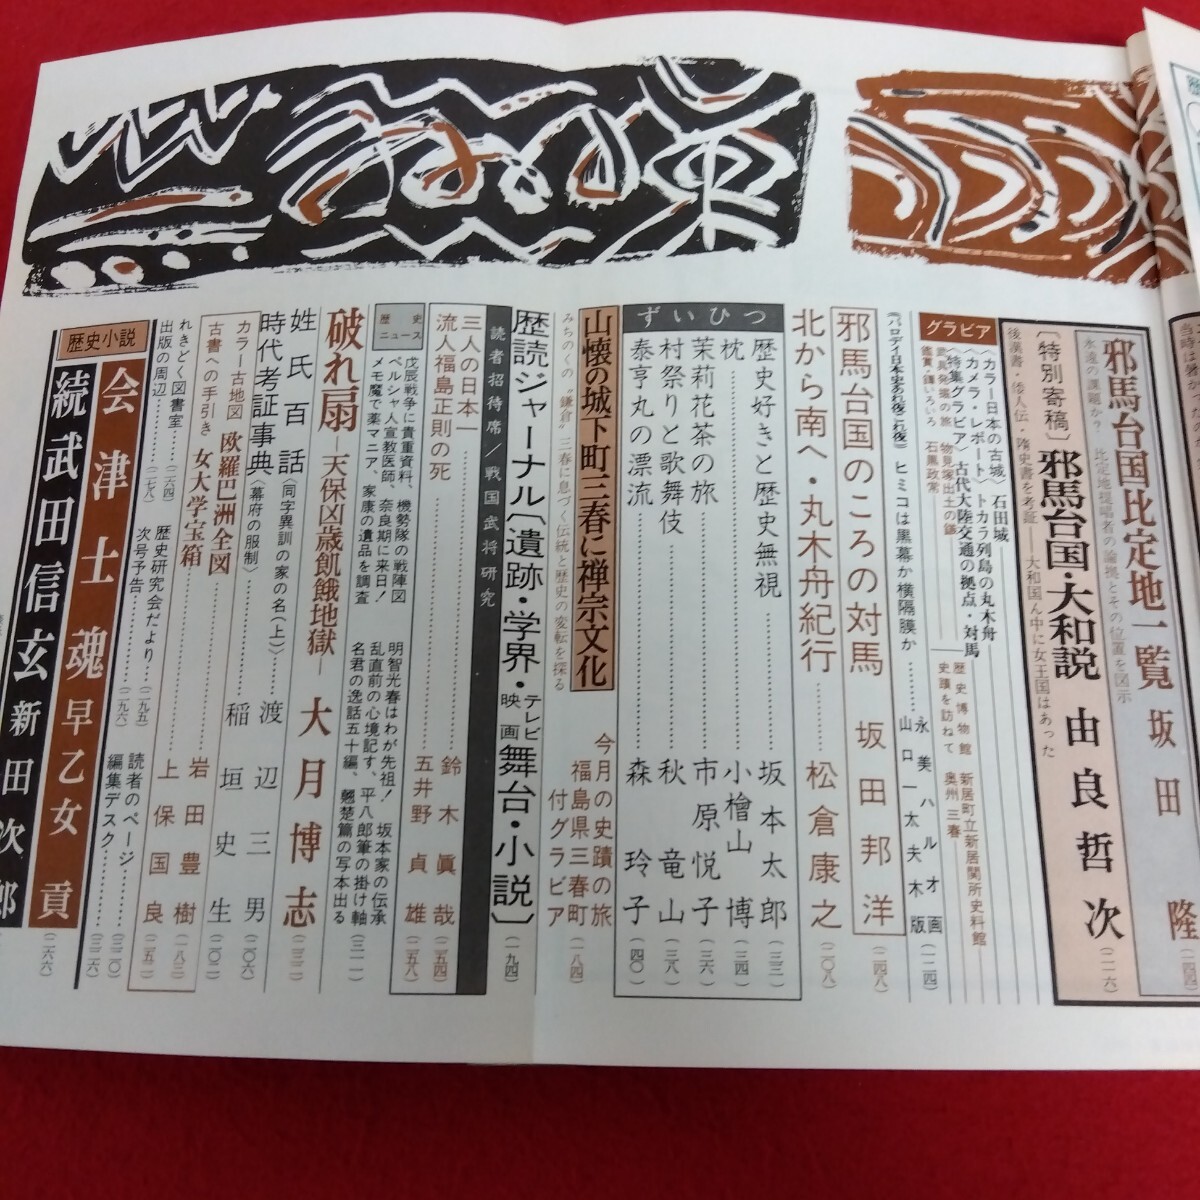 邪馬台国比定地一覧 坂田 隆 (二四四)
永遠の課題か? 比定地提唱者の論拠とその位置を図示
〔特別寄稿〕邪馬台国・大和説 由良哲次 (二一六)
後漢書・倭人伝・隋史書を考証――大和国ん中に女王国はあった
グラビア
〈カラー日本の古城〉石田城
〈カメラ・レポート〉トカラ列島の丸木舟
〈特集グラビア〉古代大陸交通の拠点・対馬
歴史博物館 新居町立新居関所史料館
武具発掘の旅 物見塚出土の鎌
史蹟を訪ねて 奥州三春
鑑賞・鎌・よろい 石黒政常
《パロディ・日本史あれ夜これ夜》ヒミコは黒幕か横隔膜か
永美ハルオ画
山口一太夫木版 (一二四)
邪馬台国のころの対馬 坂田邦洋 (二四八)
北から南へ・丸木舟紀行 松倉康之 (二〇八)
ずいひつ
歴史好きと歴史無視 坂本太郎 (三二)
枕 小檜山博 (三四)
茉莉花茶の旅 市原悦子 (三六)
村祭りと歌舞伎 秋竜山 (三八)
泰亨丸の漂流 森玲子 (四〇)
山懐の城下町三春に禅宗文化
みちのくの“鎌倉”三春に息づく伝統と歴史の変転を探る
今月の史蹟の旅
福島県三春町
付グラビア (一八四)
歴読ジャーナル〔遺跡・学界・テレビ・映画 舞台・小説〕 (一九四)
読者招待席/戦国武将研究
三人の日本一 鈴木眞哉 (一五四)
流人福島正則の死 五井野貞雄 (二五八)
歴史ニュース
戊辰戦争に貴重資料、機勢隊の戦陣図
ペルシャ人宣教医師、奈良期に来日!
メモ魔で薬マニア、家康の遺品を調査
明智光春はわが先祖! 坂本家の伝承
乱直前の心境記す、平八郎筆の掛け軸
名君の逸話五十編、翹楚篇の写本出る (三一一)
破れ扇―天保凶歳飢餓地獄― 大月博志 (二三二)
姓氏百話〈同字異訓の家の名(上)〉 渡辺三男 (二〇六)
時代考証事典〈幕府の服制〉 稲垣史生 (二〇二)
カラー古地図 欧羅巴洲全図 岩田豊樹 (一八三)
古書への手引き 女大学宝箱 上保国良 (二五二)
れきどく図書室 (二六四)
出版の周辺 (二七八)
歴史研究会だより (二九五)
次号予告 (二九六)
読者のページ (三二〇)
編集デスク (三二六)
歴史小説
会津士魂 早乙女貢 (二六六)
続武田信玄 新田次郎